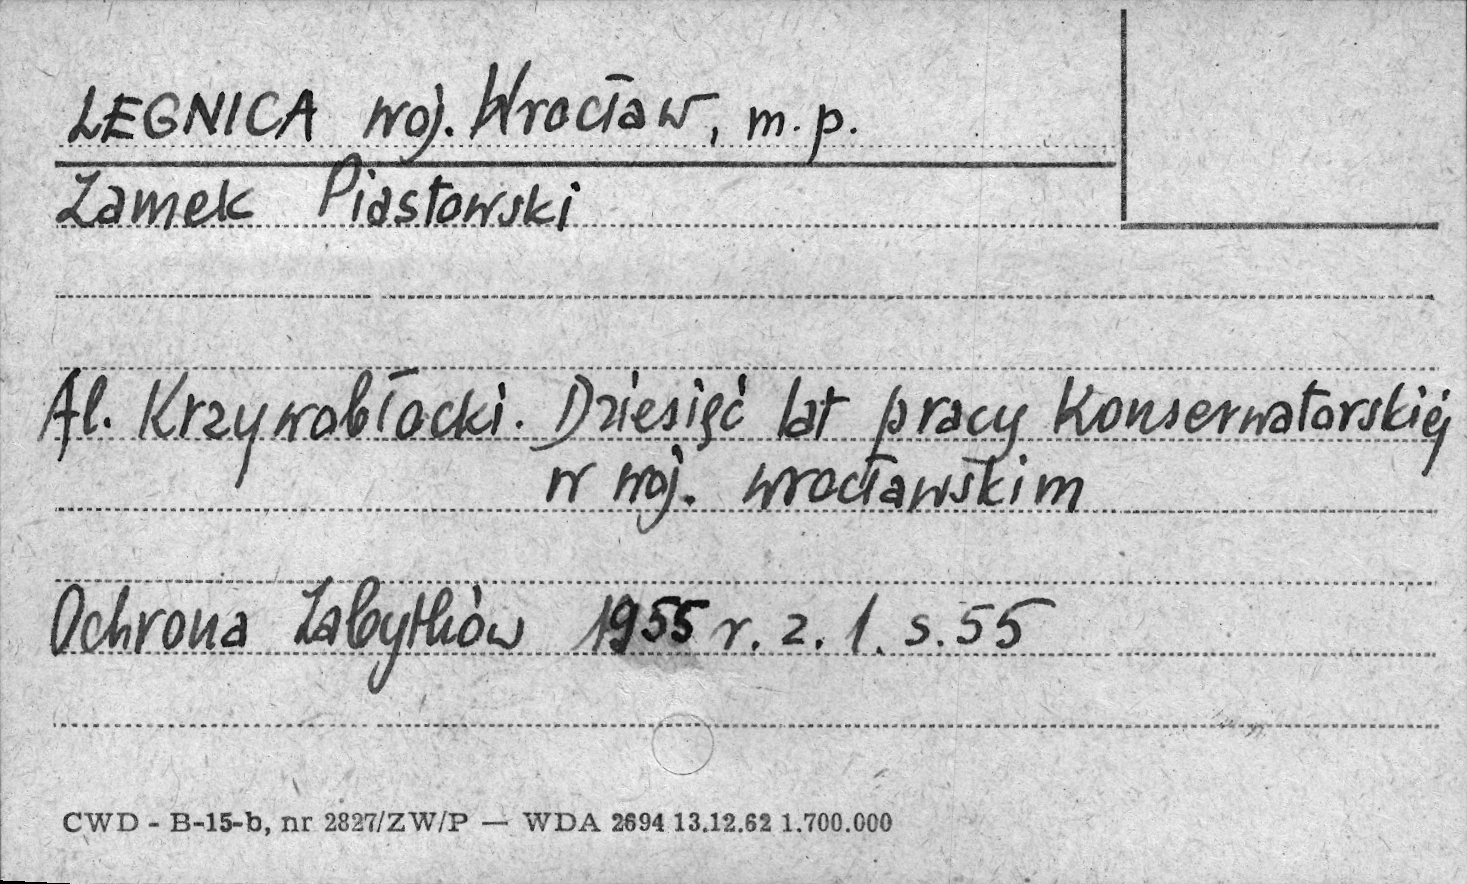 LEGNICA woj. Wrocław, m. p.
Zamek Piastowski
Al. Krzywobłocki. Dziesięć lat pracy Konserwatorskiej
w woj. wrocławskim
Ochrona Zabytków 1955 r. z. 1. s. 55
CWD - B-15-b, nr 2827/ZW/P — WDA 2694 13.12.62 1.700.000